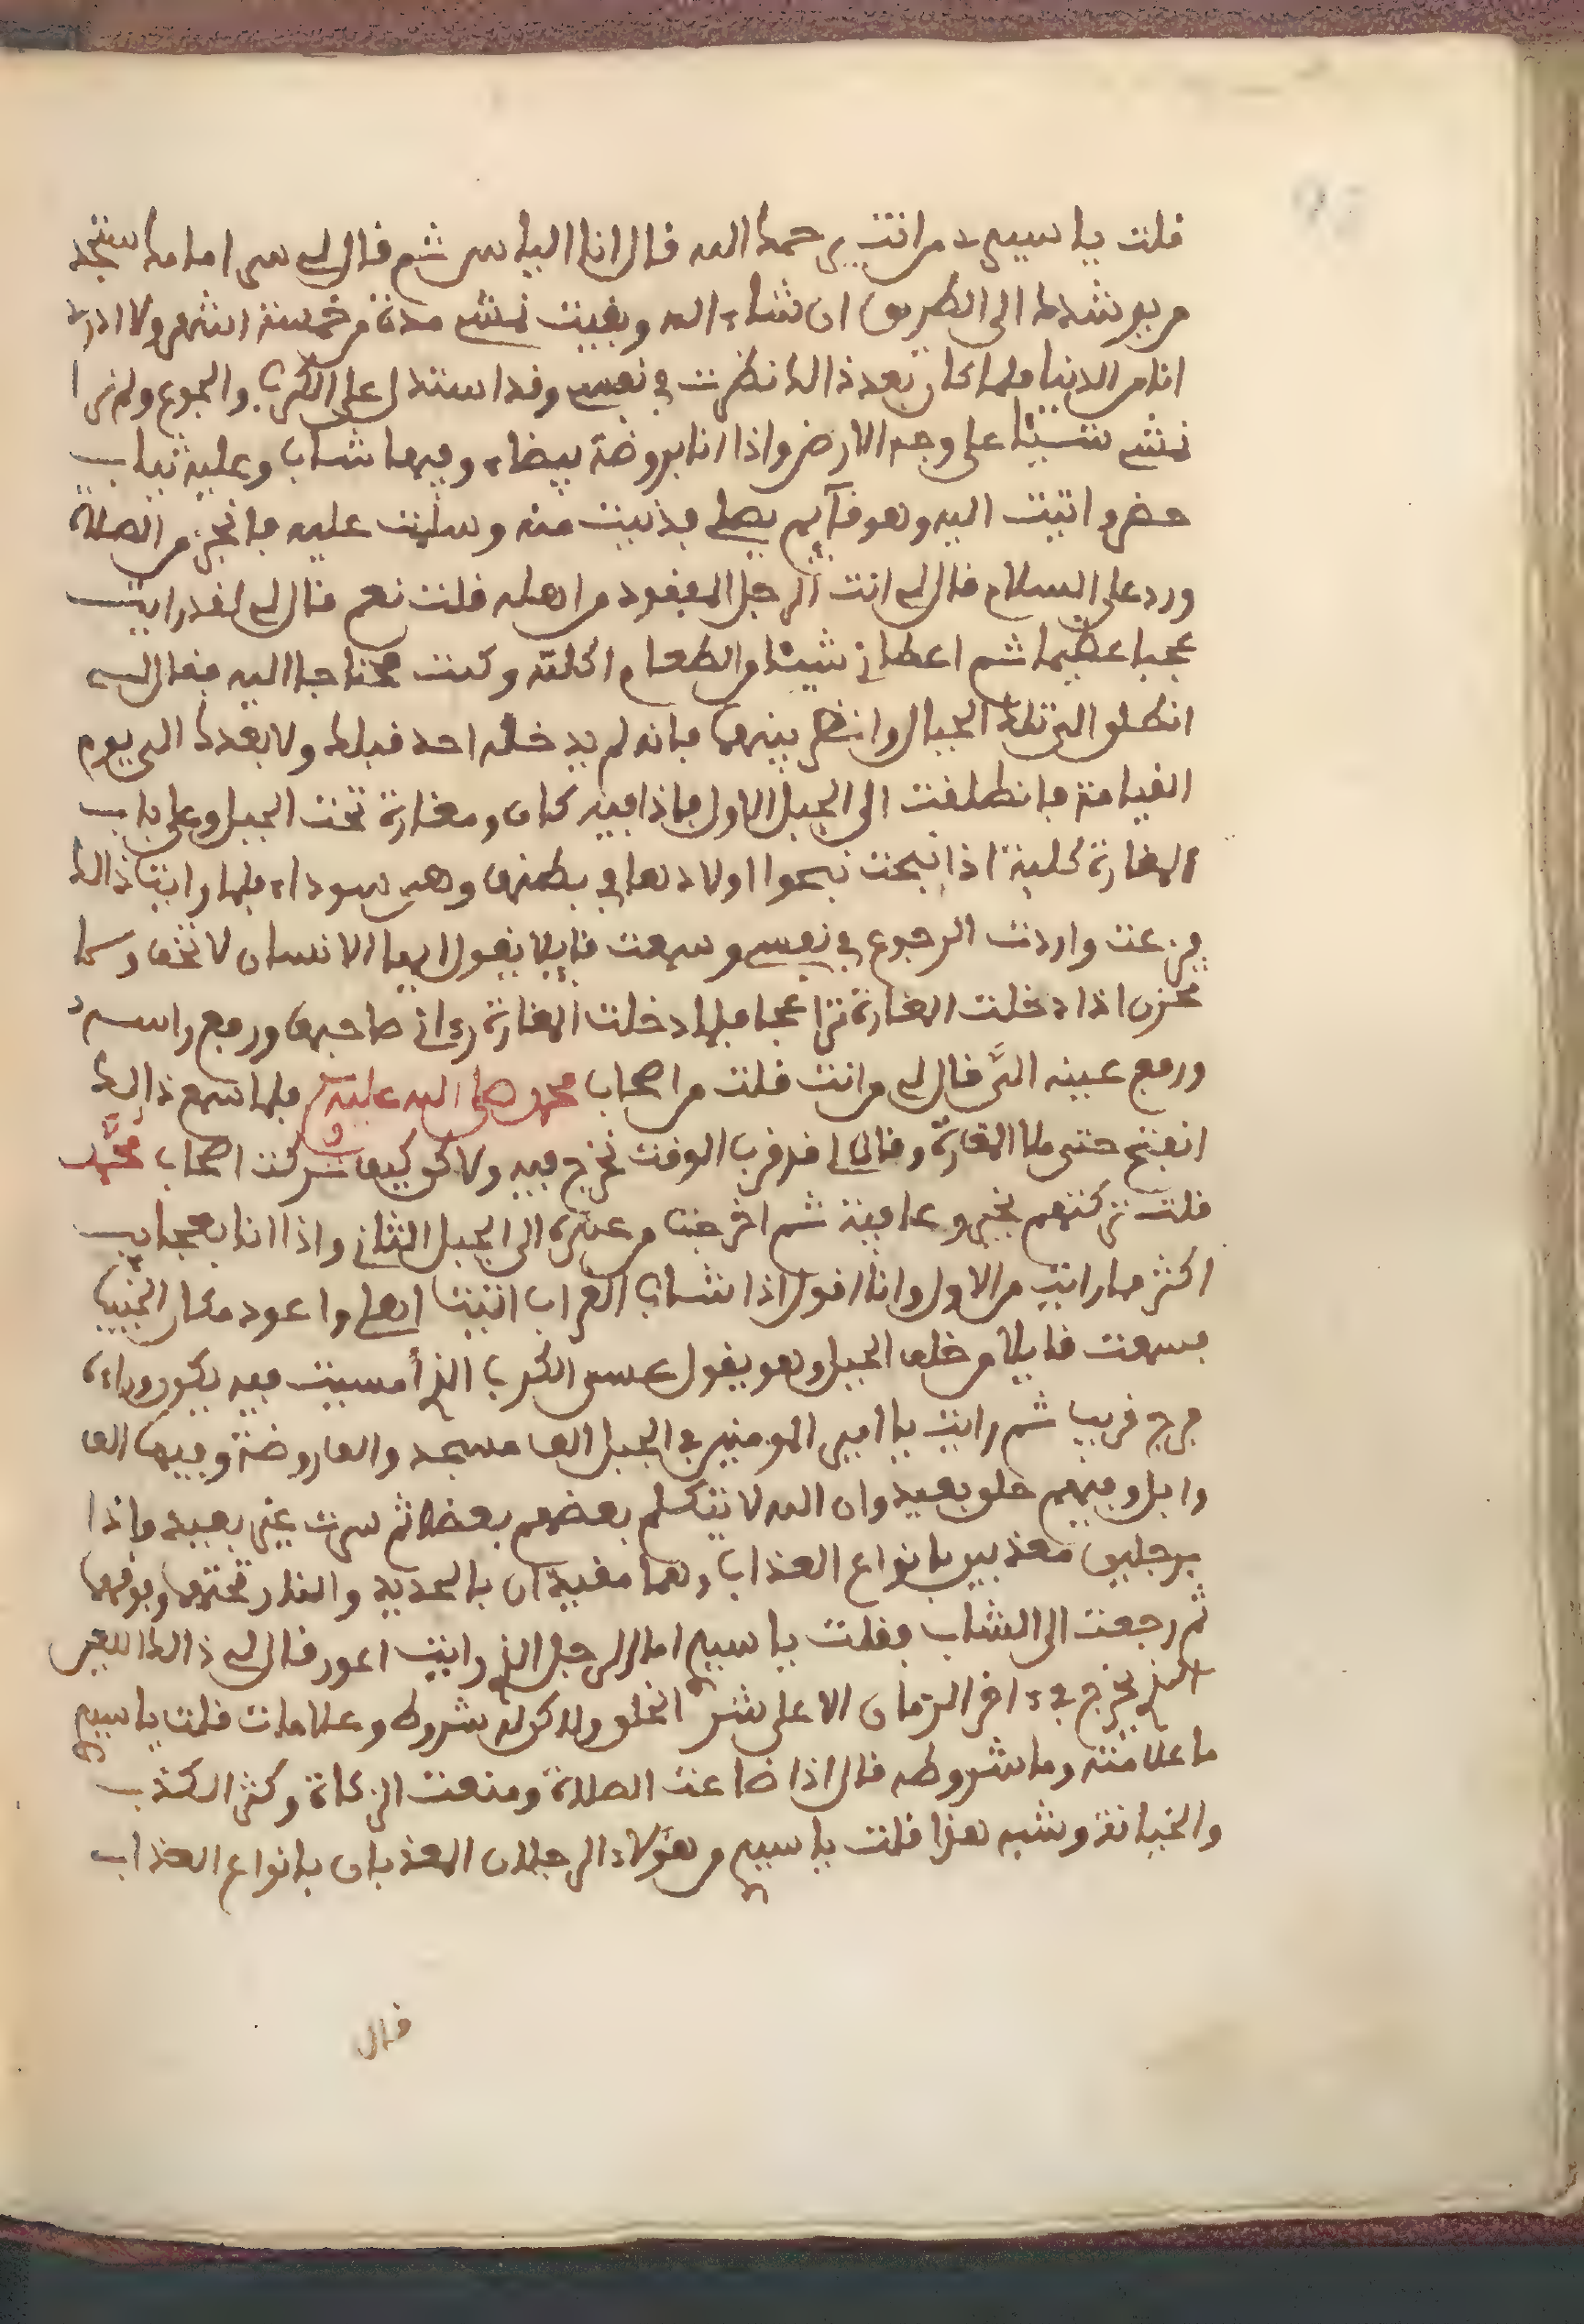 قلت يا سيدي من انت يرحمك الله قال انا الياس ثم قال لي سر امامك ستجد
من يرشدك الى الطريق ان شاء الله وبقيت نمشي مدة من خمسة اشهر ولا ادري
انا من الدنيا فلما كان بعد ذالك نظرت في نفسي وقد استدل علي الكرب والجوع ولم نرا
نمشي شيئا على وجه الارض واذا انا بروضة بيضاء وفيها شاب وعليه ثياب
خضر واتيت اليه وهو قآيم يصلي فدنيت منه وسلمت عليه فانجز من الصلاة
ورد علي السلام قال لي انت الرجل المفقود من اهله قلت نعم قال لي لقد رايت
عجبا عظيما ثم اعطاني شيئا من الطعام اكلته وكنت محتاجا اليه فقال لي
انطلق الى تلك الجبال وانظر بينها فانه لم يدخله احد قبلك ولا بعدك الى يوم
القيامة فانطلقت الى الجبل الاول فاذا فيه كان ومغارة تحت الجبل وعلى باب
المغارة كلبة اذا نبحت نبحوا اولادها في بطنها وهي سوداء فلما رايت ذالك
فزعت واردت الرجوع في نفسي وسمعت قايلا يقول ايها الانسان لا تخف ولا
تحزن اذا دخلت المغارة ترا عجبا فلما دخلت المغارة رءاني صاحبها ورفع راسه
ورفع عينه اليَّ قال لي من انت قلت من اصحاب محمد صلى الله عليه وسلم فلما سمع ذالك
انتفخ حتى ملا المغارة وقال لي قد قرب الوقت نخرج فيه ولاكن كيف تركت اصحاب محمَّد
قلت تركتهم بخير وعافية ثم اخرجت من عنده الى الجبل الثاني واذا انا بعجايب
اكثر مما رايت من الاول وانا اقول اذا شاب الغراب اتيت اهلي واعود مكان الحبيبا
فسمعت قايلا من خلف الجبل وهو يقول عسى الكرب الذي أمسيت فيه يكون وراءه
فرج قريب ثم رايت يا امير المومنين في الجبل الف مسجد والف روضة وفيها الف
وابل وفيهم خلق بعيد وان الله لا يتكلم بعضهم بعضا ثم سرت غير بعيد واذا
برجلين معذبين بانواع العذاب وهما مقيدان بالحديد والنار تحتها وفوقها
ثم رجعت الى الشاب فقلت يا سيدي اما الرجل الذي رايت اعور قال لي ذالك اللعين
الذي يخرج في ءاخر الزمان الا على شر الخلق ولاكن له شروط وعلامات قلت يا سيدي
ما علامته وما شروطه قال اذا ضاعت الصلاة ومنعت الزكاة وكثر الكذب
والخيانة وشبه هذا قلت يا سيدي من هؤلاء الرجلان المعذبان بانواع العذاب
قال